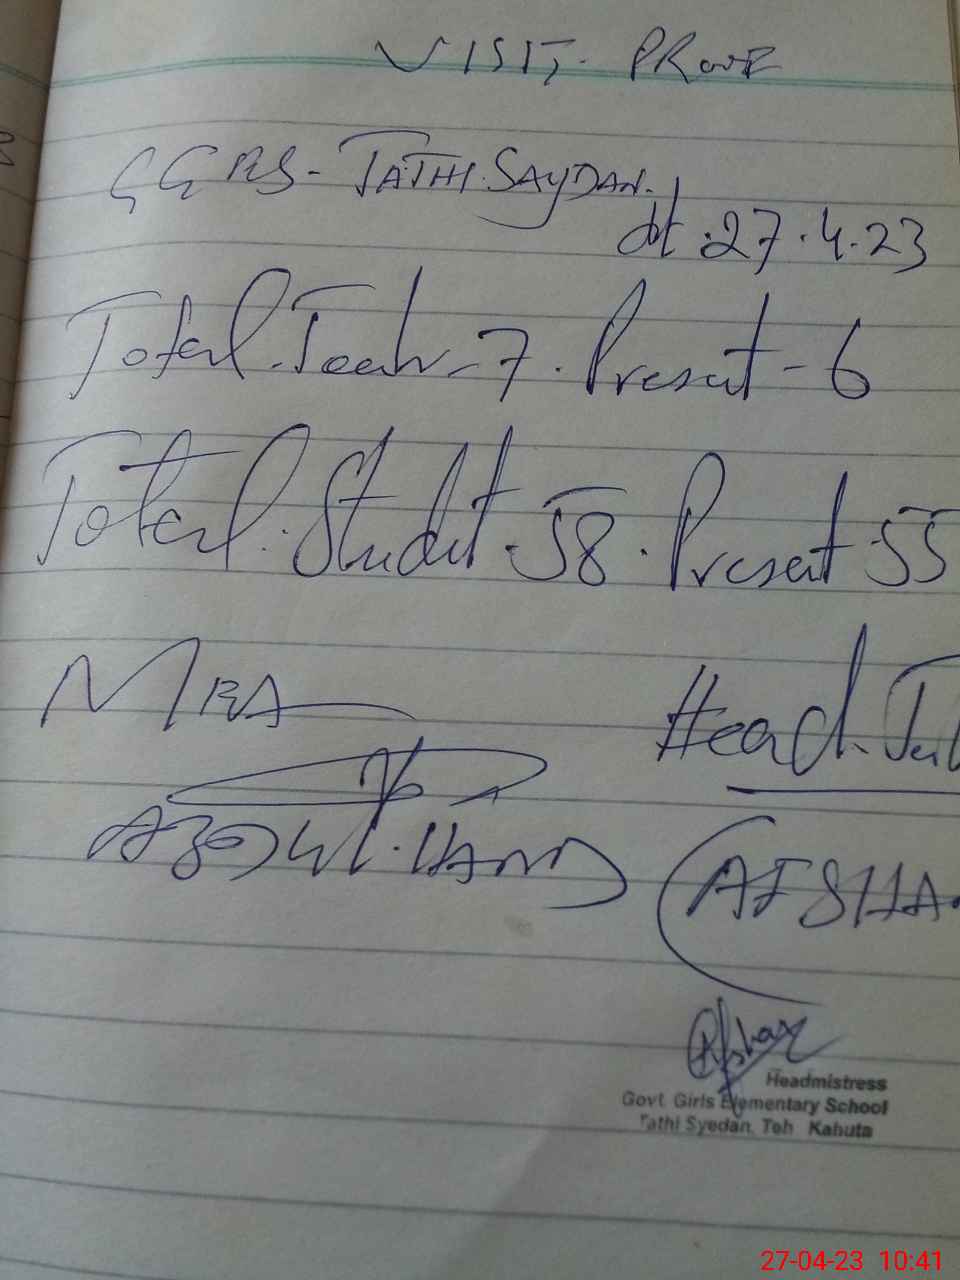 VISIT, PROVE
GGES - TATHI SAYDAN.
dt. 27.4.23
Total. Teach - 7. Present - 6
Total. Student. 58. Present 55
MEA
Head. T
(AFSHA
Afshan
Headmistress
Govt. Girls Elementary School
Tathi Syedan, Teh Kahuta
27-04-23 10:41